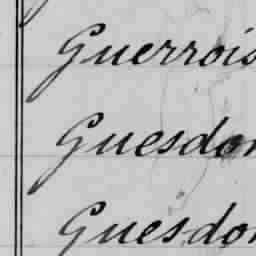 Guerrois
Guesdon
Guesdon